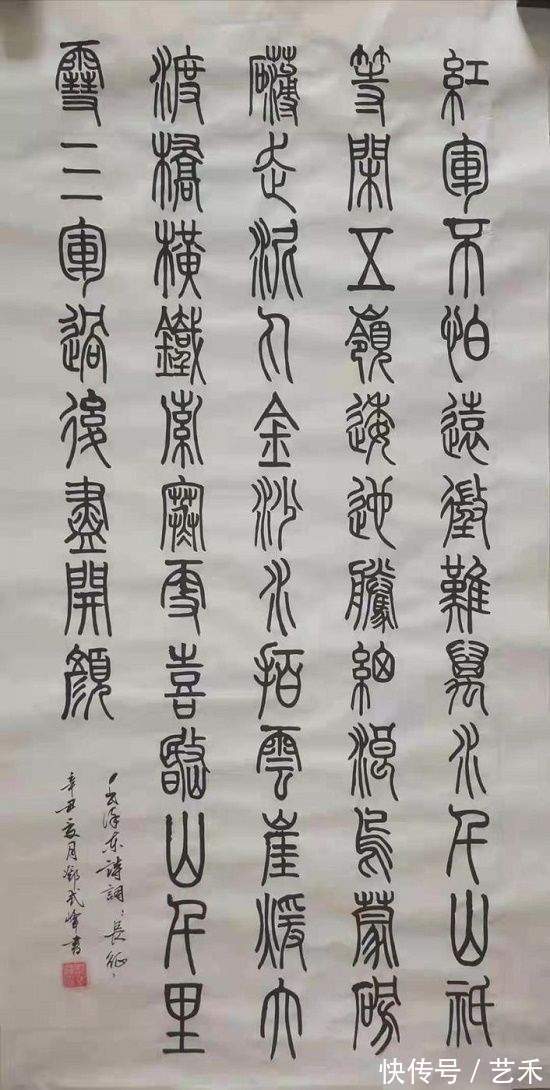 紅軍不怕遠徵難萬水千山祇
等閑五嶺逶迤騰細浪烏蒙磅
礴走泥丸金沙水拍雲崖暖大
渡橋橫鐵索寒更喜岷山千里
雪三軍過後盡開顏
毛澤东詩詞:長征:
辛丑夏月鄧武峰書
快传号/艺禾